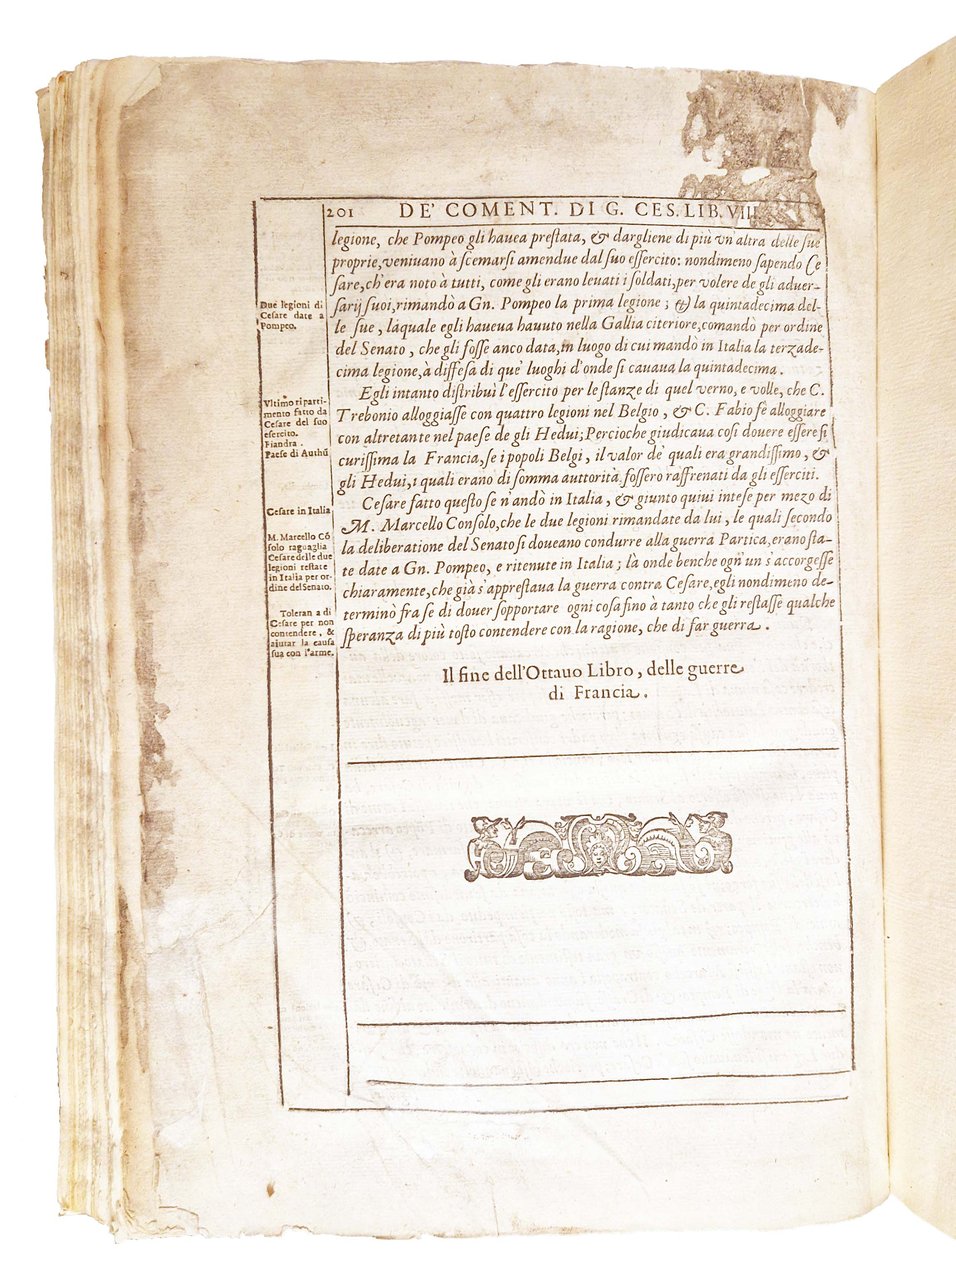 201 DE' COMENT. DI G. CES. LIB. VIII
legione, che Pompeo gli hauea prestata, & dargliene di più vn'altra delle sue
proprie, veniuano à scemarsi amendue dal suo essercito: nondimeno sapendo Ce
sare, ch'era noto à tutti, come gli erano leuati i soldati, per volere de gli aduer-
sarij suoi, rimandò a Gn. Pompeo la prima legione; & la quintadecima del-
le sue, laquale egli haueua hauuto nella Gallia citeriore, comandò per ordine
del Senato, che gli fosse anco data, in luogo di cui mandò in Italia la terzade-
cima legione, à diffesa di que' luoghi d'onde si cauaua la quintadecima.
Egli intanto distribuì l'essercito per le stanze di quel verno, e volle, che C.
Trebonio alloggiasse con quattro legioni nel Belgio, & C. Fabio fè alloggiare
con altretante nel paese de gli Hedui; Percioche giudicaua così douere essere si
curissima la Francia, se i popoli Belgi, il valor de' quali era grandissimo, &
gli Hedui, i quali erano di somma auttorità, fossero raffrenati da gli esserciti.
Cesare fatto questo se n'andò in Italia, & giunto quiui intese per mezo di
M. Marcello Consolo, che le due legioni rimandate da lui, le quali secondo
la deliberatione del Senato si doueano condurre alla guerra Partica, erano sta-
te date a Gn. Pompeo, e ritenute in Italia; là onde benche ogn'un s'accorgesse
chiaramente, che già s'apprestaua la guerra contra Cesare, egli nondimeno de-
terminò fra se di douer sopportare ogni cosa fino à tanto che gli restasse qualche
speranza di più tosto contendere con la ragione, che di far guerra.
Il fine dell'Ottauo Libro, delle guerre
di Francia.
Due legioni di
Cesare date a
Pompeo.
Vltimo riparti-
mento fatto da
Cesare del suo
esercito.
Fiandra.
Paese di Authū
Cesare in Italia
M. Marcello Cō
solo raguaglia
Cesare delle due
legioni restate
in Italia per or-
dine del Senato.
Toleran a di
Cesare per non
contendere, &
aiutar la causa
sua con l'arme.